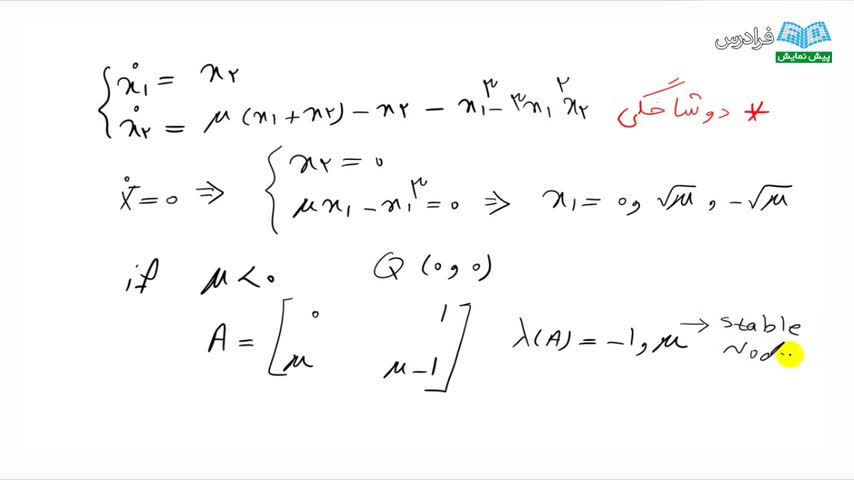 فرادرس
پیش نمایش
ẋ₁ = x۲
ẋ۲ = μ(x₁ + x۲) - x۲ - x₁^۳ - ۳x₁^۲ x۲ * دوشاخگی
Ẋ = 0 ⇒ { x۲ = 0
μx₁ - x₁^۳ = 0 ⇒ x₁ = 0, √μ, -√μ
if μ < 0 Q (0, 0)
A = [0 1; μ μ-1] λ(A) = -1, μ → stable
Nod